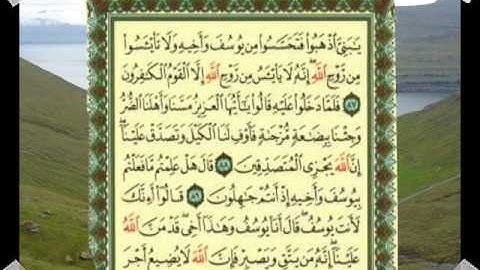 يَـٰبَنِىَّ ٱذْهَبُوا۟ فَتَحَسَّسُوا۟ مِن يُوسُفَ وَأَخِيهِ وَلَا تَا۟يْـَٔسُوا۟
مِن رَّوْحِ ٱللَّهِ إِنَّهُۥ لَا يَا۟يْـَٔسُ مِن رَّوْحِ ٱللَّهِ إِلَّا ٱلْقَوْمُ ٱلْكَـٰفِرُونَ
٨٧ فَلَمَّا دَخَلُوا۟ عَلَيْهِ قَالُوا۟ يَـٰٓأَيُّهَا ٱلْعَزِيزُ مَسَّنَا وَأَهْلَنَا ٱلضُّرُّ
وَجِئْنَا بِبِضَـٰعَةٍ مُّزْجَىٰةٍ فَأَوْفِ لَنَا ٱلْكَيْلَ وَتَصَدَّقْ عَلَيْنَآ
إِنَّ ٱللَّهَ يَجْزِى ٱلْمُتَصَدِّقِينَ ٨٨ قَالَ هَلْ عَلِمْتُم مَّا فَعَلْتُم
بِيُوسُفَ وَأَخِيهِ إِذْ أَنتُمْ جَـٰهِلُونَ ٨٩ قَالُوٓا۟ أَءِنَّكَ
لَأَنتَ يُوسُفُ قَالَ أَنَا۠ يُوسُفُ وَهَـٰذَآ أَخِى قَدْ مَنَّ ٱللَّهُ
عَلَيْنَآ إِنَّهُۥ مَن يَتَّقِ وَيَصْبِرْ فَإِنَّ ٱللَّهَ لَا يُضِيعُ أَجْرَ